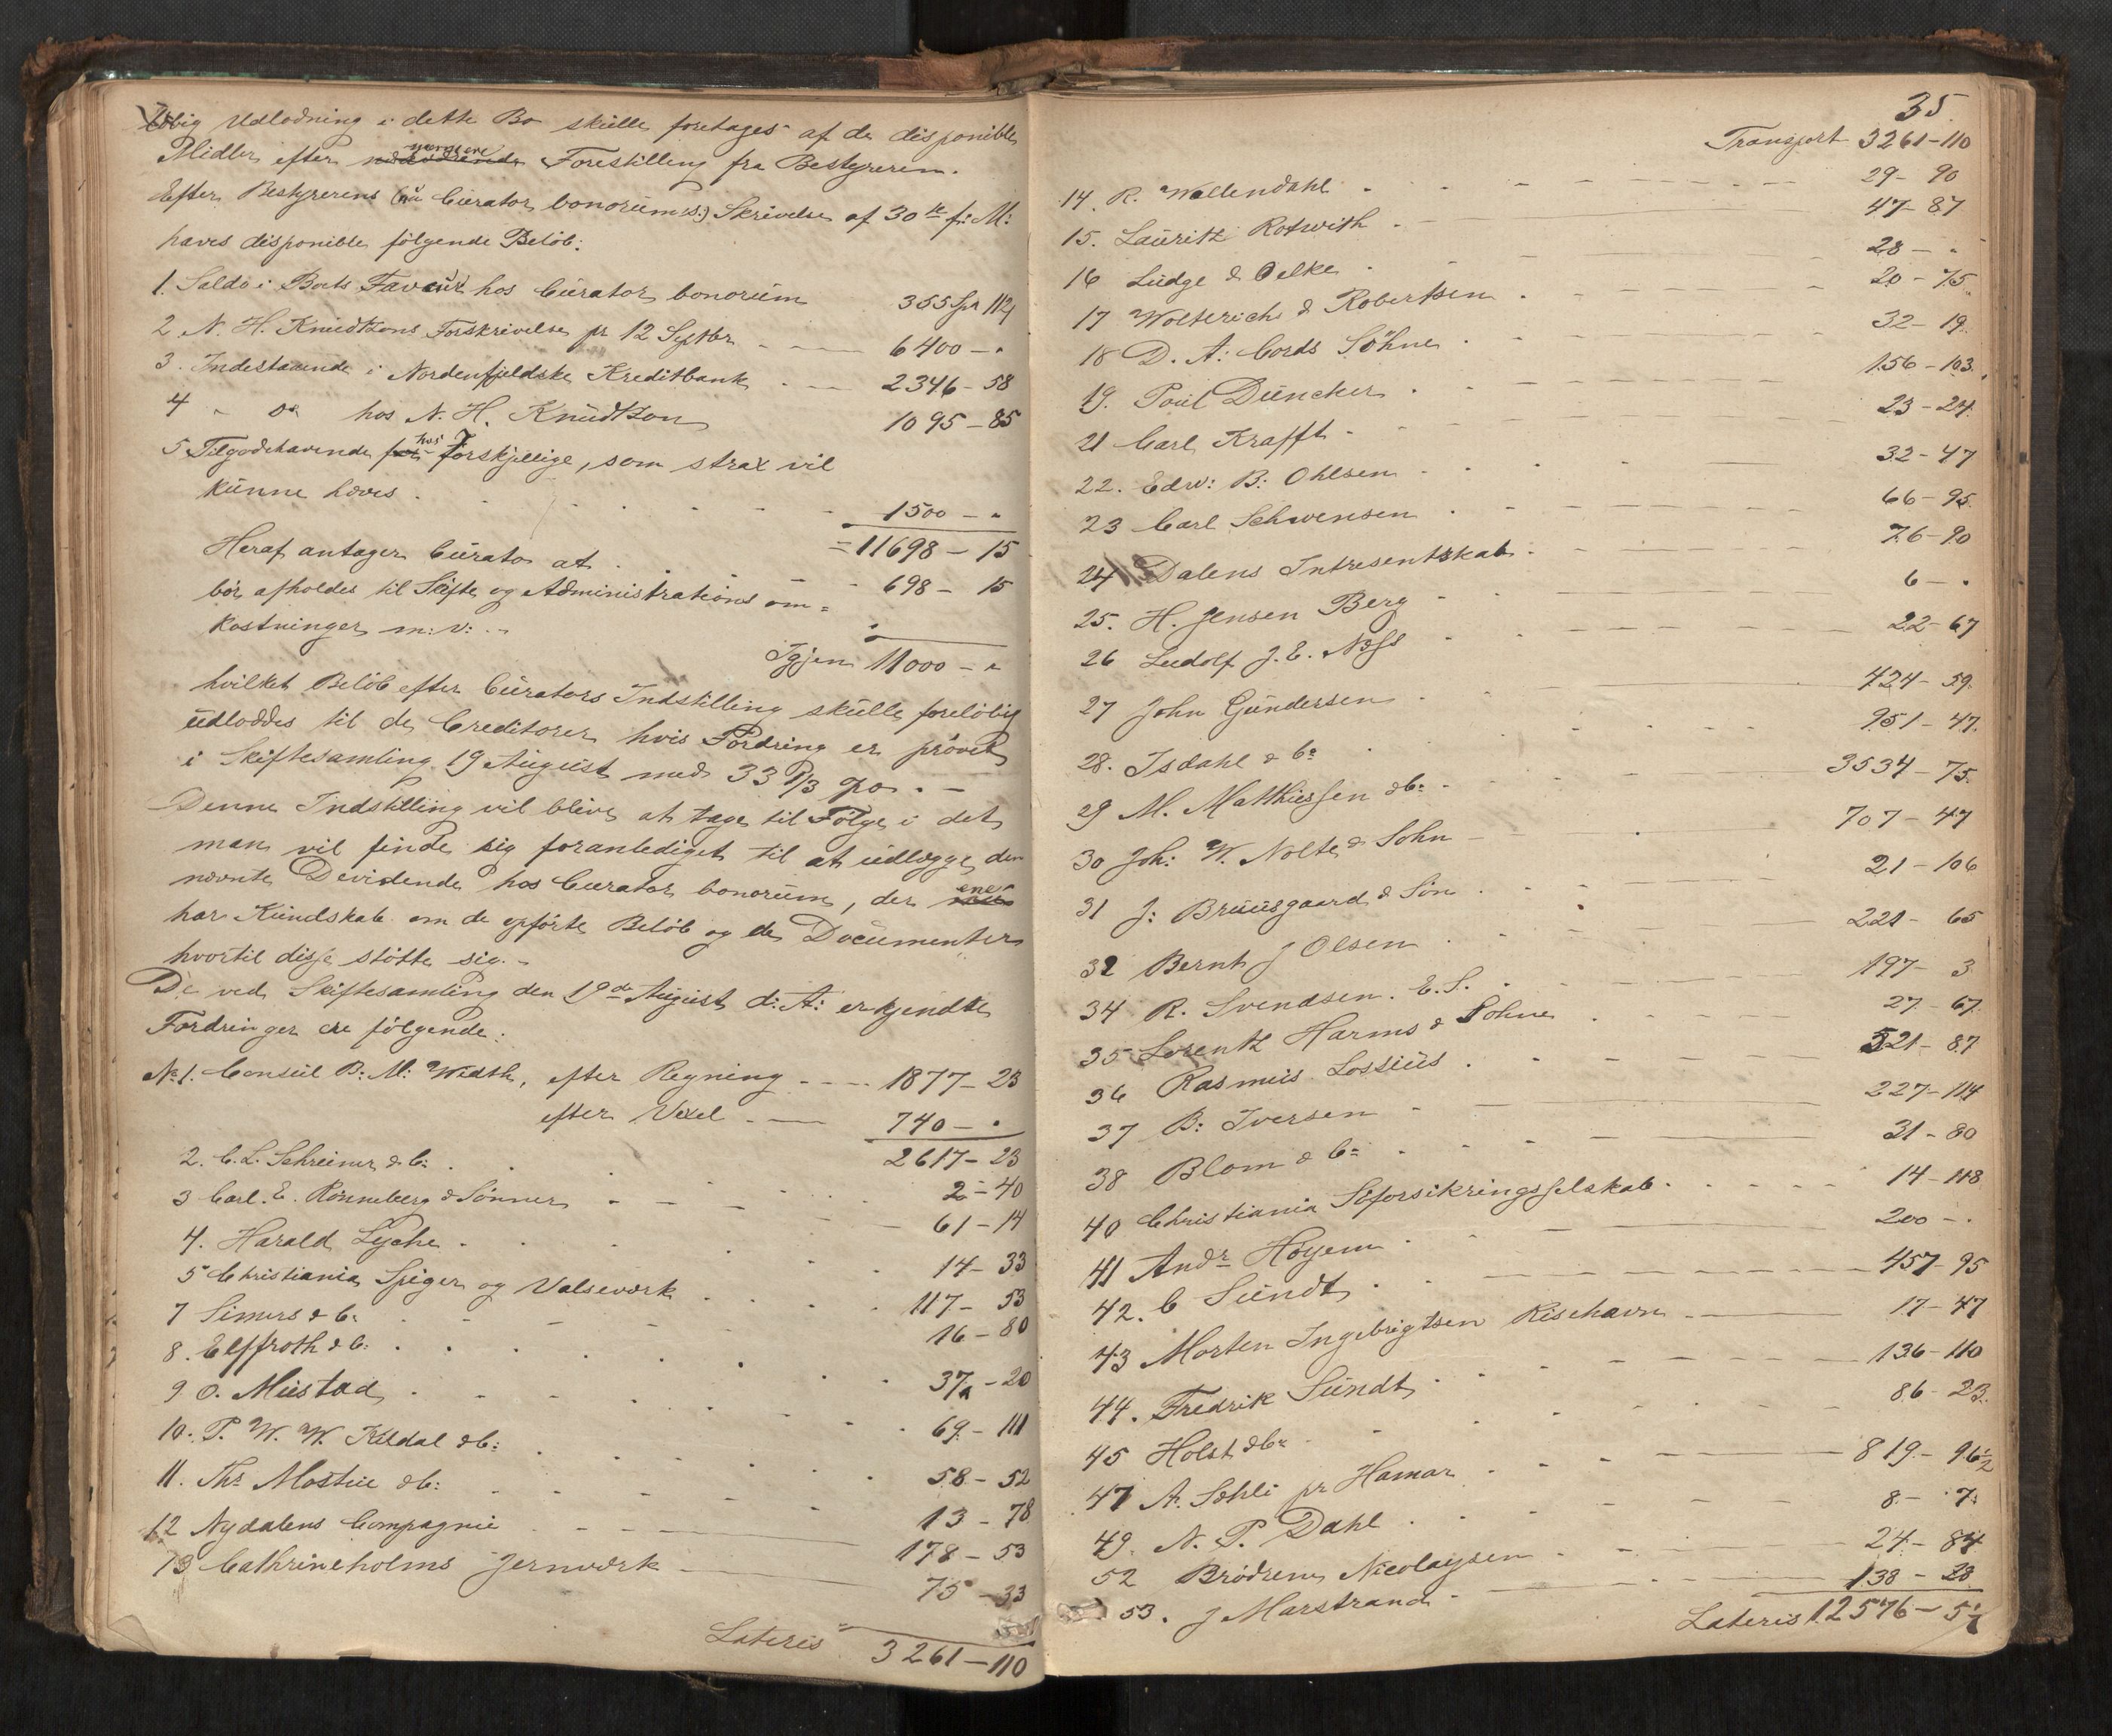 løbig Udlodning i dette Bo skulle foretages af de disponible
Midler efter nærmere Forestilling fra Bestyreren.
Efter Bestyrerens (nu Curator bonorum:s:) Skrivelse af 30te f: M:
haves disponible følgende Beløb:
1. Saldo i Boets Faveur hos Curator bonorum 355 Spd 112
2 N. H. Knudtzons Forskrivelse pr 12 Septbr 6400 – "
3. Indestaaende i Nordenfjeldske Kreditbank 2346 – 58
4 " do hos N. H. Knudtzon 1095 – 85
5 Tilgodehavende hos Forskjellige, som strax vil
kunne haves 1500 – "
= 11698 – 15
Heraf antager Curator at
bør afholdes til Skifte og Administrations om= 698 – 15
kostninger m: v:
Igjen 11000 – "
hvilket Beløb efter Curators Indstilling skulle foreløbig
udloddes til de Creditorer hvis Fordring er prøvet
i Skiftesamling 19 August med 33 1/3 pro. –
Denne Indstilling vil blive at tage til Følge i det
man vil finde sig foranlediget til at udlægge den
nævnte Devidende hos Curator bonorum, der ene
har Kundskab om de opførte Beløb og de Documenter
hvortil disse støtte sig. –
De ved Skiftesamling den 19de August d: A: erkjendte
Fordringer ere følgende:
No 1. Consul B: M: Width, efter Regning 1877 – 23
efter Vexel 740 – "
2617 – 23
2. C. L. Schreiner & C: 2 – 40
3 Carl. E. Rønneberg & Sønner 61 – 14
4. Harald Lyche 14 – 33
5 Christiania Spiger og Valseværk 117 – 53
7 Simers & C: 16 – 80
8. Elffroth & C: 37 – 20
9 O. Mustad 69 – 111
10. P. W. W. Kildal & C: 58 – 52
11. Ths Mostue & C: 13 – 78
12 Nydalens Compagnie 178 – 53
13 Cathrineholms Jernværk 75 – 33
Lateris 3261 – 110
35
Transport 3261 – 110
14. R. Wallendahl 29 – 90
15. Lauritz Rotwith 47 – 87
16 Lüdge & Oelke 28 – "
17 Wolterich & Robertsen 20 – 75
18 D. A: Cords Söhne 32 – 19
19. Poul Duncker 156 – 103
21 Carl Krafft 23 – 24
22. Edw: B: Ohlsen 32 – 47
23 Carl Schwensen 66 – 95
24 Dalens Intresentskab 76 – 90
25. H. Jensen Berg 6 – "
26 Ludolf J. E. Næss 22 – 67
27 John Gundersen 424 – 59
28. Isdahl & Co 951 – 47
29 M. Matthiessen & C: 3534 – 75
30 Joh: W. Nolte & Sohn 707 – 47
31 J: Bruusgaard & Søn 21 – 106
32 Bernt J Olsen 221 – 65
34 R. Svendsen. E. S. 197 – 3
35 Lorentz Harms & Sohne 27 – 67
36 Rasmus Lossius 521 – 87
37 B: Iversen 227 – 114
38 Blom & Co 31 – 80
40 Christiania Søforsikringsselskab 14 – 118
41 Andr Høyem 200 – "
42. C Sundt 457 – 95
43 Morten Ingebrigtsen Risehavn 17 – 47
44. Fredrik Sundt 136 – 110
45 Holst & Co 86 – 23
47 A. Sæhli pr Hamar 819 – 96 1/2
49. N. P. Dahl 8 – 7
52 Brødrene Nicolaysen 24 – 84
53. J Marstrand 138 – 28
Lateris 12576 – 5 1/2